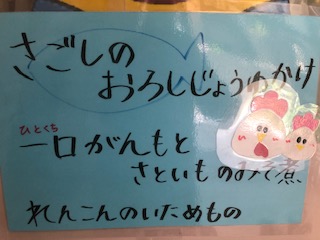 さごしの
おろしじょうゆがけ
ひとくち
一口がんもと
さといものみそ煮
れんこんのいためもの